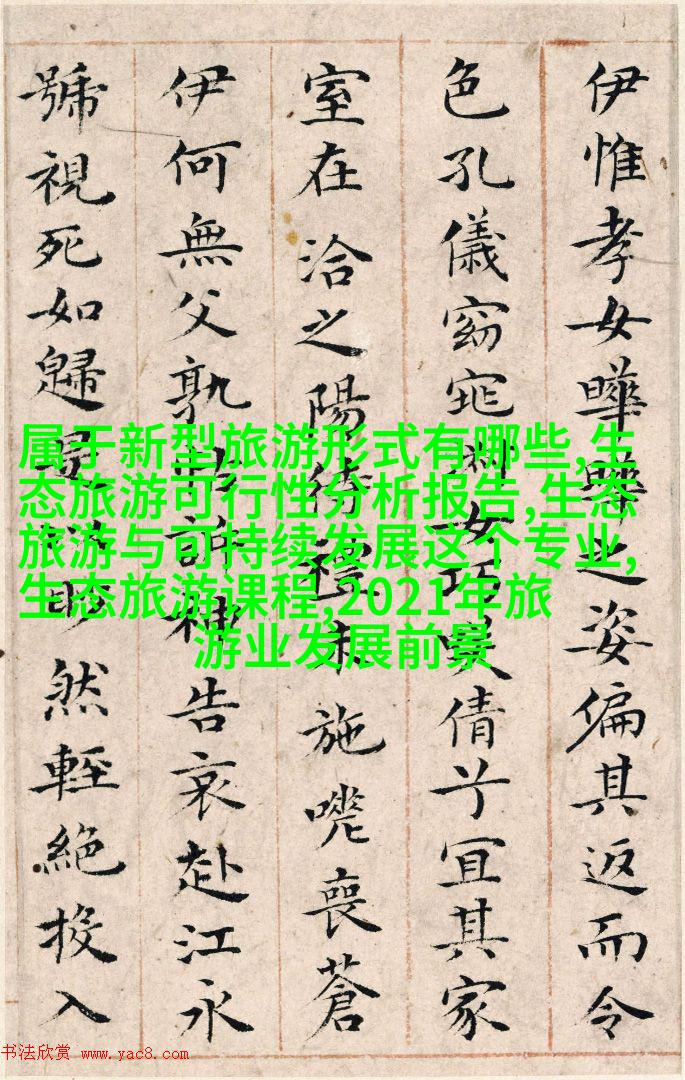 伊惟孝女曄曄之姿偏其返而令
色孔儀窈窕淑女巧笑倩兮宜其家
室在洽之陽待禮未施嗟喪蒼
伊何無父孰訴神告哀赴江永
號視死如歸是以眇然輕絕投入
属于新型旅游形式有哪些,生
态旅游可行性分析报告,生态
旅游与可持续发展这个专业,
生态旅游课程,2021年旅
游业发展前景
书法欣赏 www.yac8.com